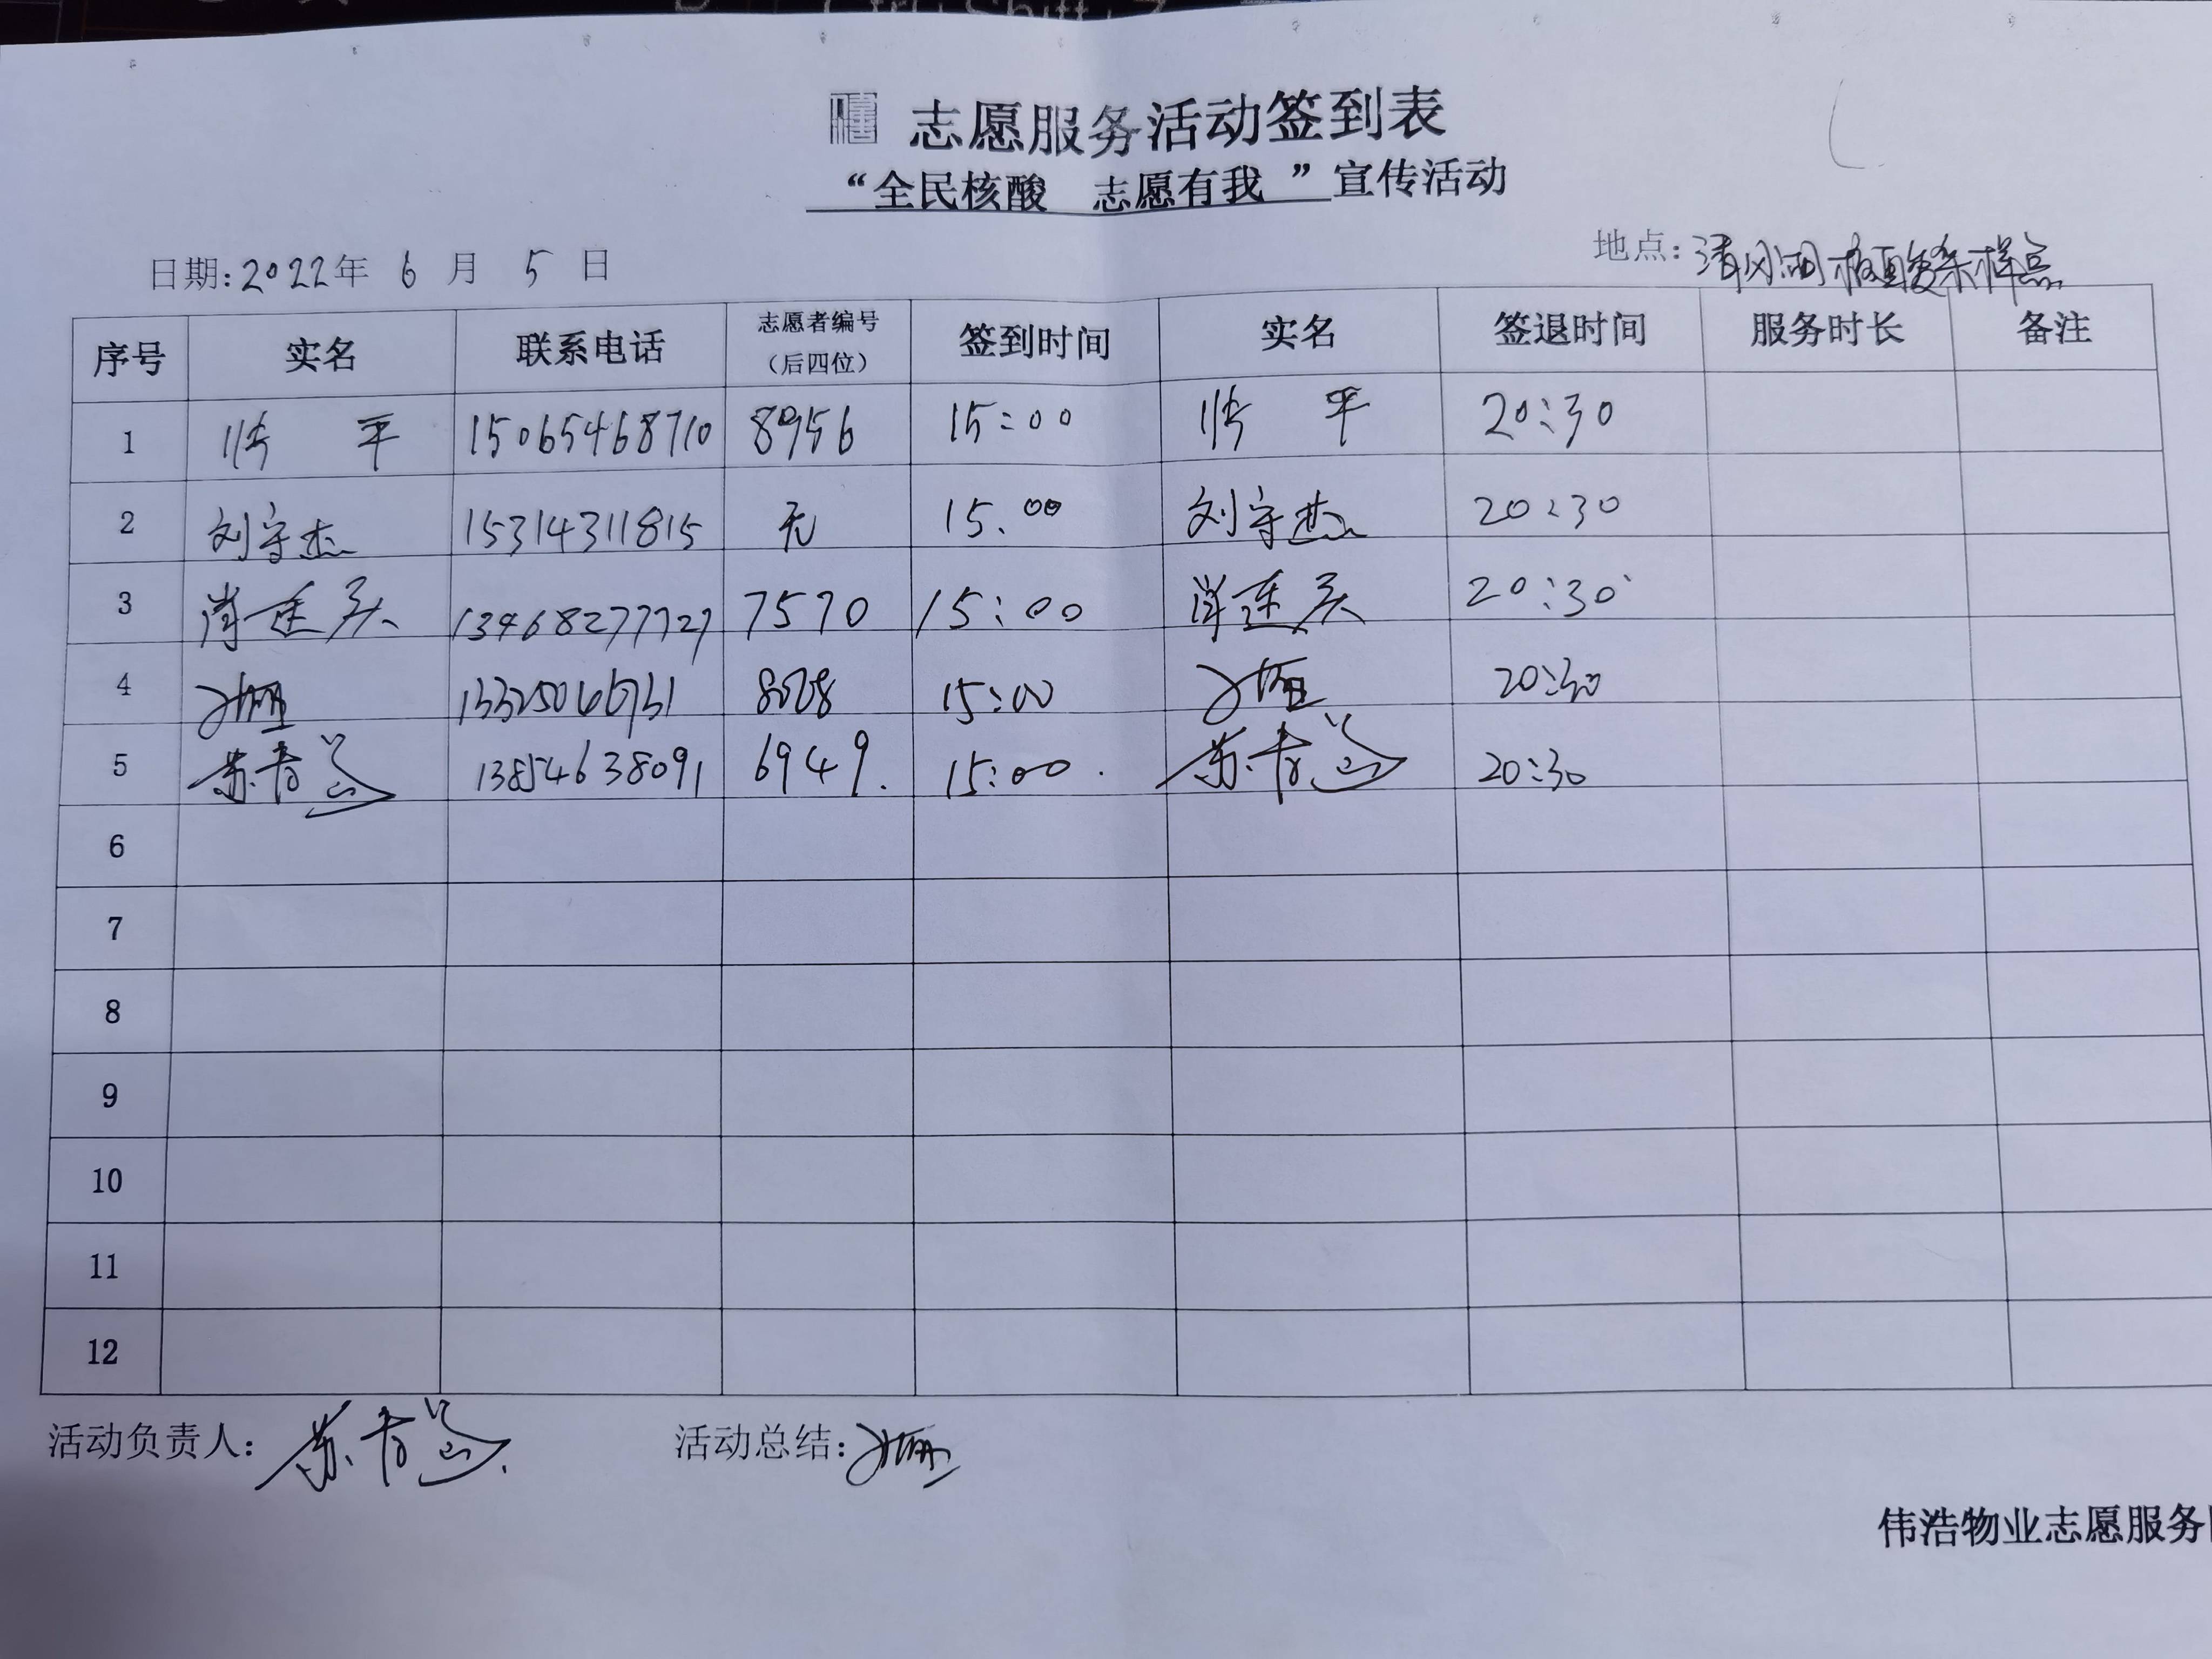 志愿服务活动签到表
“全民核酸 志愿有我 ”宣传活动
日期:2022年 6 月 5 日 地点:清风湖核酸采样点
序号 实名 联系电话 志愿者编号（后四位） 签到时间 实名 签退时间 服务时长 备注
1 平 15065468710 8956 15:00 平 20:30
2 刘守杰 15314311815 无 15:00 刘守杰 20:30
3 肖连 13468277727 7570 15:00 肖连 20:30
4 15:00 20:30
5 苏 13854638091 6949. 15:00. 苏 20:30
6
7
8
9
10
11
12
活动负责人: 苏 活动总结:
伟浩物业志愿服务